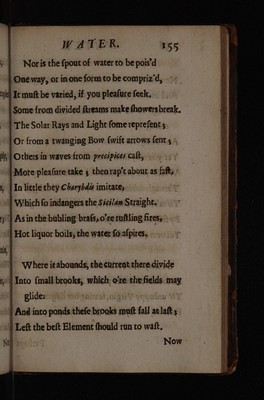 WATER. 155
Nor is the spout of water to be pois'd
One way, or in one form to be compriz'd,
It must be varied, if you pleasure seek.
Some from divided streams make showers break.
The Solar Rays and Light some represent;
Or from a twanging Bow swift arrows sent;
Others in waves from precipices cast,
More pleasure take; then rap't about as fast,
In little they Charybdis imitate,
Which so indangers the Sicilian Straight.
As in the bubling brass, o're rustling fires,
Hot liquor boils, the water so aspires.
Where it abounds, the current there divide
Into small brooks, which o're the fields may
glide:
And into ponds these brooks must fall at last;
Lest the best Element should run to wast.
Now